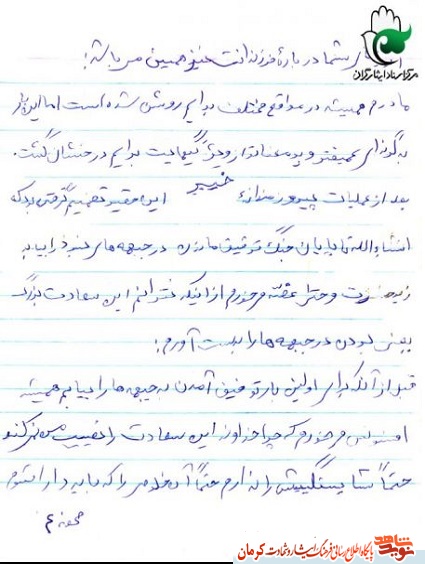 مرکز اسناد ایثارگران
شما درباره فرزندانت نیز همین می باشد!
مادرم همیشه در مواقع مختلف برایم روشن شده است اما این بار
به گونه ای عمیقتر و پرمعناتر از ویژگیهایت برایم درخشان گشت.
بعد از عملیات پیروزمندانه خیبر این حقیر تصمیم گرفتن بود که
انشاءالله تا پایان جنگ توفیق ماندن در جبهه های
و حتی غصه می خورم از اینکه نتوانم این سعادت بزرگ
یعنی بودن در جبهه ها را بدست آورم!
قبل از آنکه برای اولین بار توفیق آمدن به جبهه ها را بیابم همیشه
افسوس می خوردم که چرا خداوند این سعادت را نصیب من نمی کند
حتماً شایستگیش را ندارم حتماً آن خلوص را که باید دارا نیستم
صفحه ۴
نوید شاهد
پایگاه اطلاع رسانی فرهنگ ایثار و شهادت کرمان